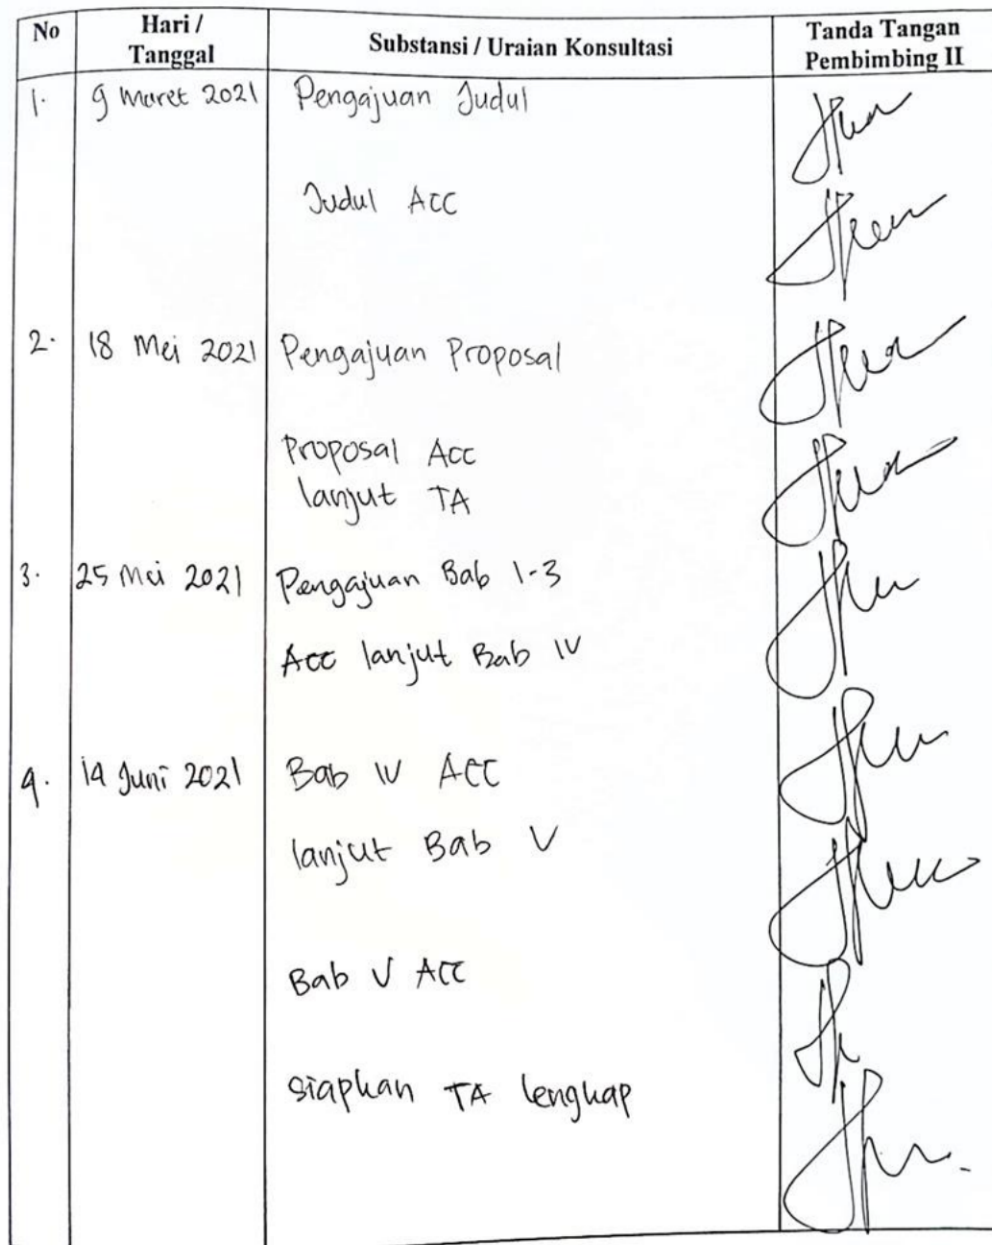 No
Hari /
Tanggal
Substansi / Uraian Konsultasi
Tanda Tangan
Pembimbing II
1. 9 Maret 2021 Pengajuan Judul
Judul ACC
2. 18 Mei 2021 Pengajuan Proposal
Proposal Acc
lanjut TA
3. 25 Mei 2021 Pengajuan Bab 1-3
Acc lanjut Bab IV
4. 14 Juni 2021 Bab IV ACC
lanjut Bab V
Bab V ACC
siapkan TA lengkap